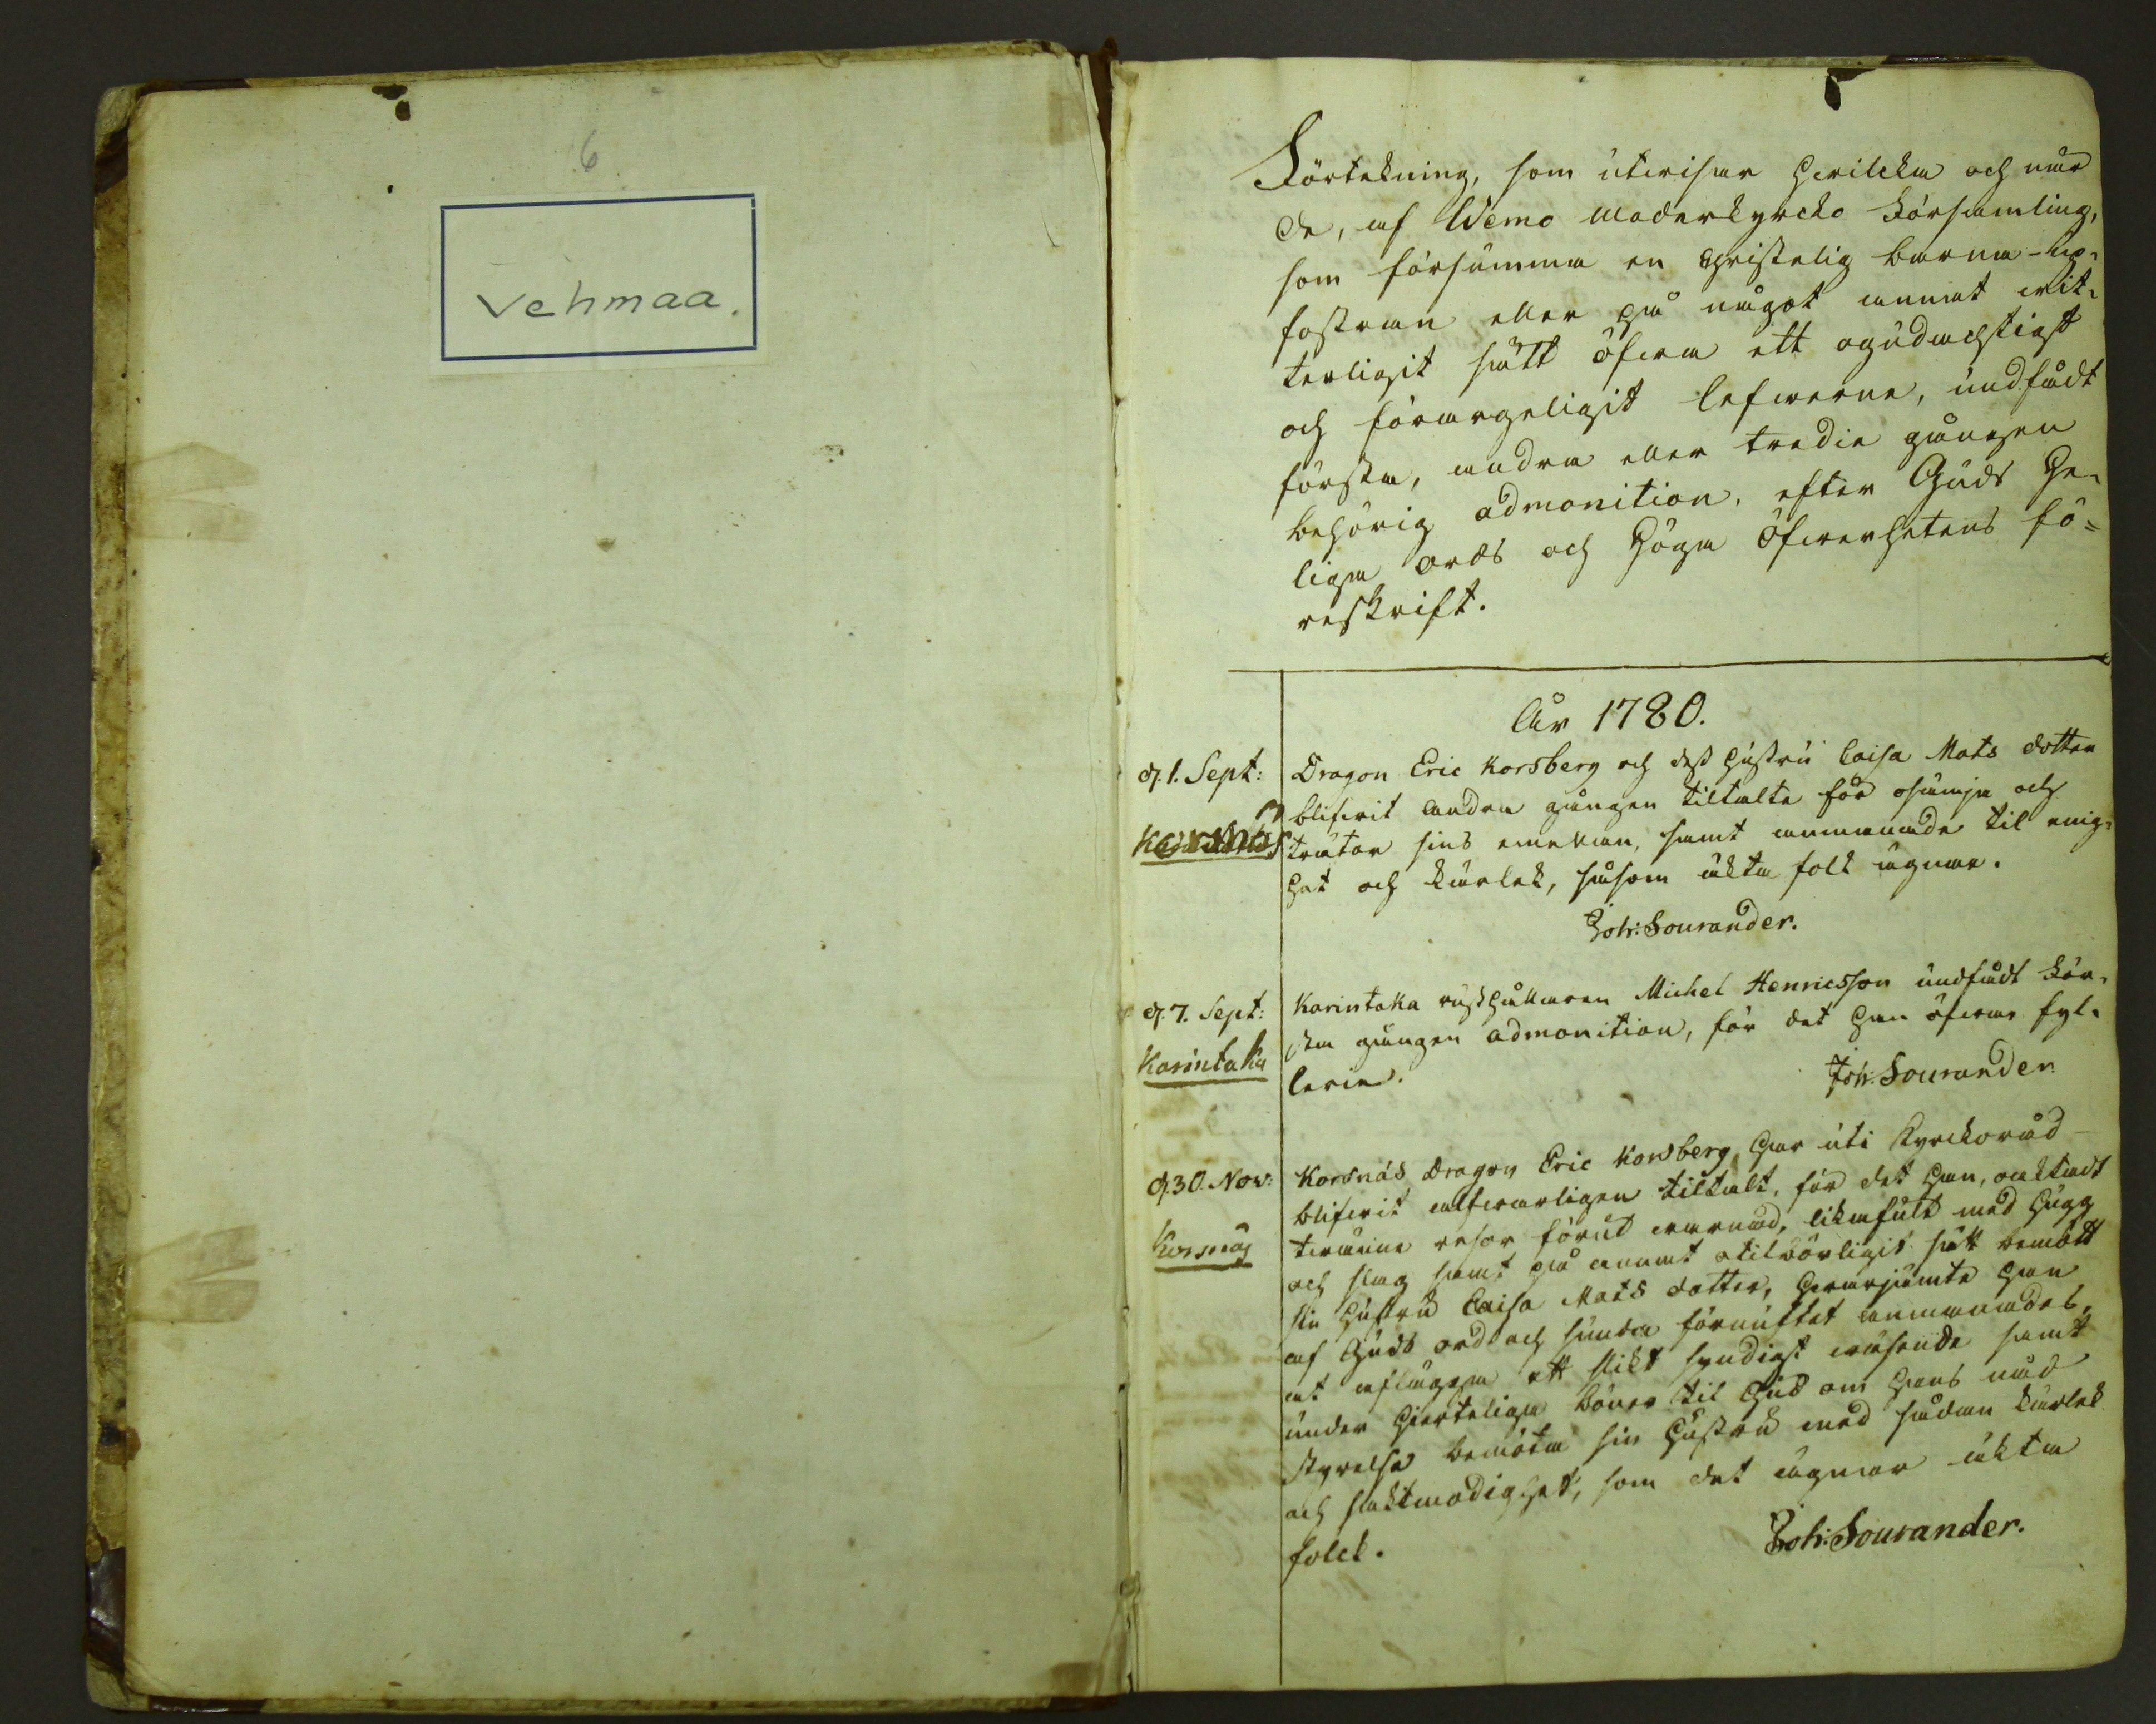 6
Vehmaa.
Förtekning, som utvisar hvilcka och när
de, af Wemo Moderkyrcko Församling,
som försumma en Christelig barna-up-
fostran eller på något annat vit-
terligit sätt öfva ett ogudachtigt
och förargeligit lefverne, undfådt
första, andra eller tredie gången
behörig admonition, efter Guds He-
liga ords och Höga Öfverhetens fö-
reskrift.
År 1780.
d. 1. Sept:
Dragon Eric Korsberg och dess hustru Caisa Mats dotter
blifvit andra gången tiltalte för osämja och
Korsnäs
trätor sins emellan, samt ammanade til enig-
het och kärlek, såsom äkta folk ägnar.
Joh: Sourander.
d. 7. Sept:
Karintaka rusthållaren Michel Henricsson undfådt för-
sta gången admonition, för det han öfvar fyl-
Karintaka
leri.
Joh: Sourander.
d. 30. Nov:
Korsnäs Dragon Eric Korsberg, har uti Kyrckoråd
blifvit alfvarligen tiltalt, för det han, oaktadt
tvänne resor förut varnad, likafult med hugg
Korsnäs
och slag samt på annat otilbörligit sätt bemött
sin hustru Caisa Mats dotter, hvarjämte han
af Guds ord och sunda förnuftet ammanades,
at aflägga ett slikt syndigt väsende samt
under hierteliga böner til Gud om hans nåd
styrelse bemöta sin hustru med sådan kärlek
och saktmodighet, som det ägnar äkta
folck.
Joh: Sourander.